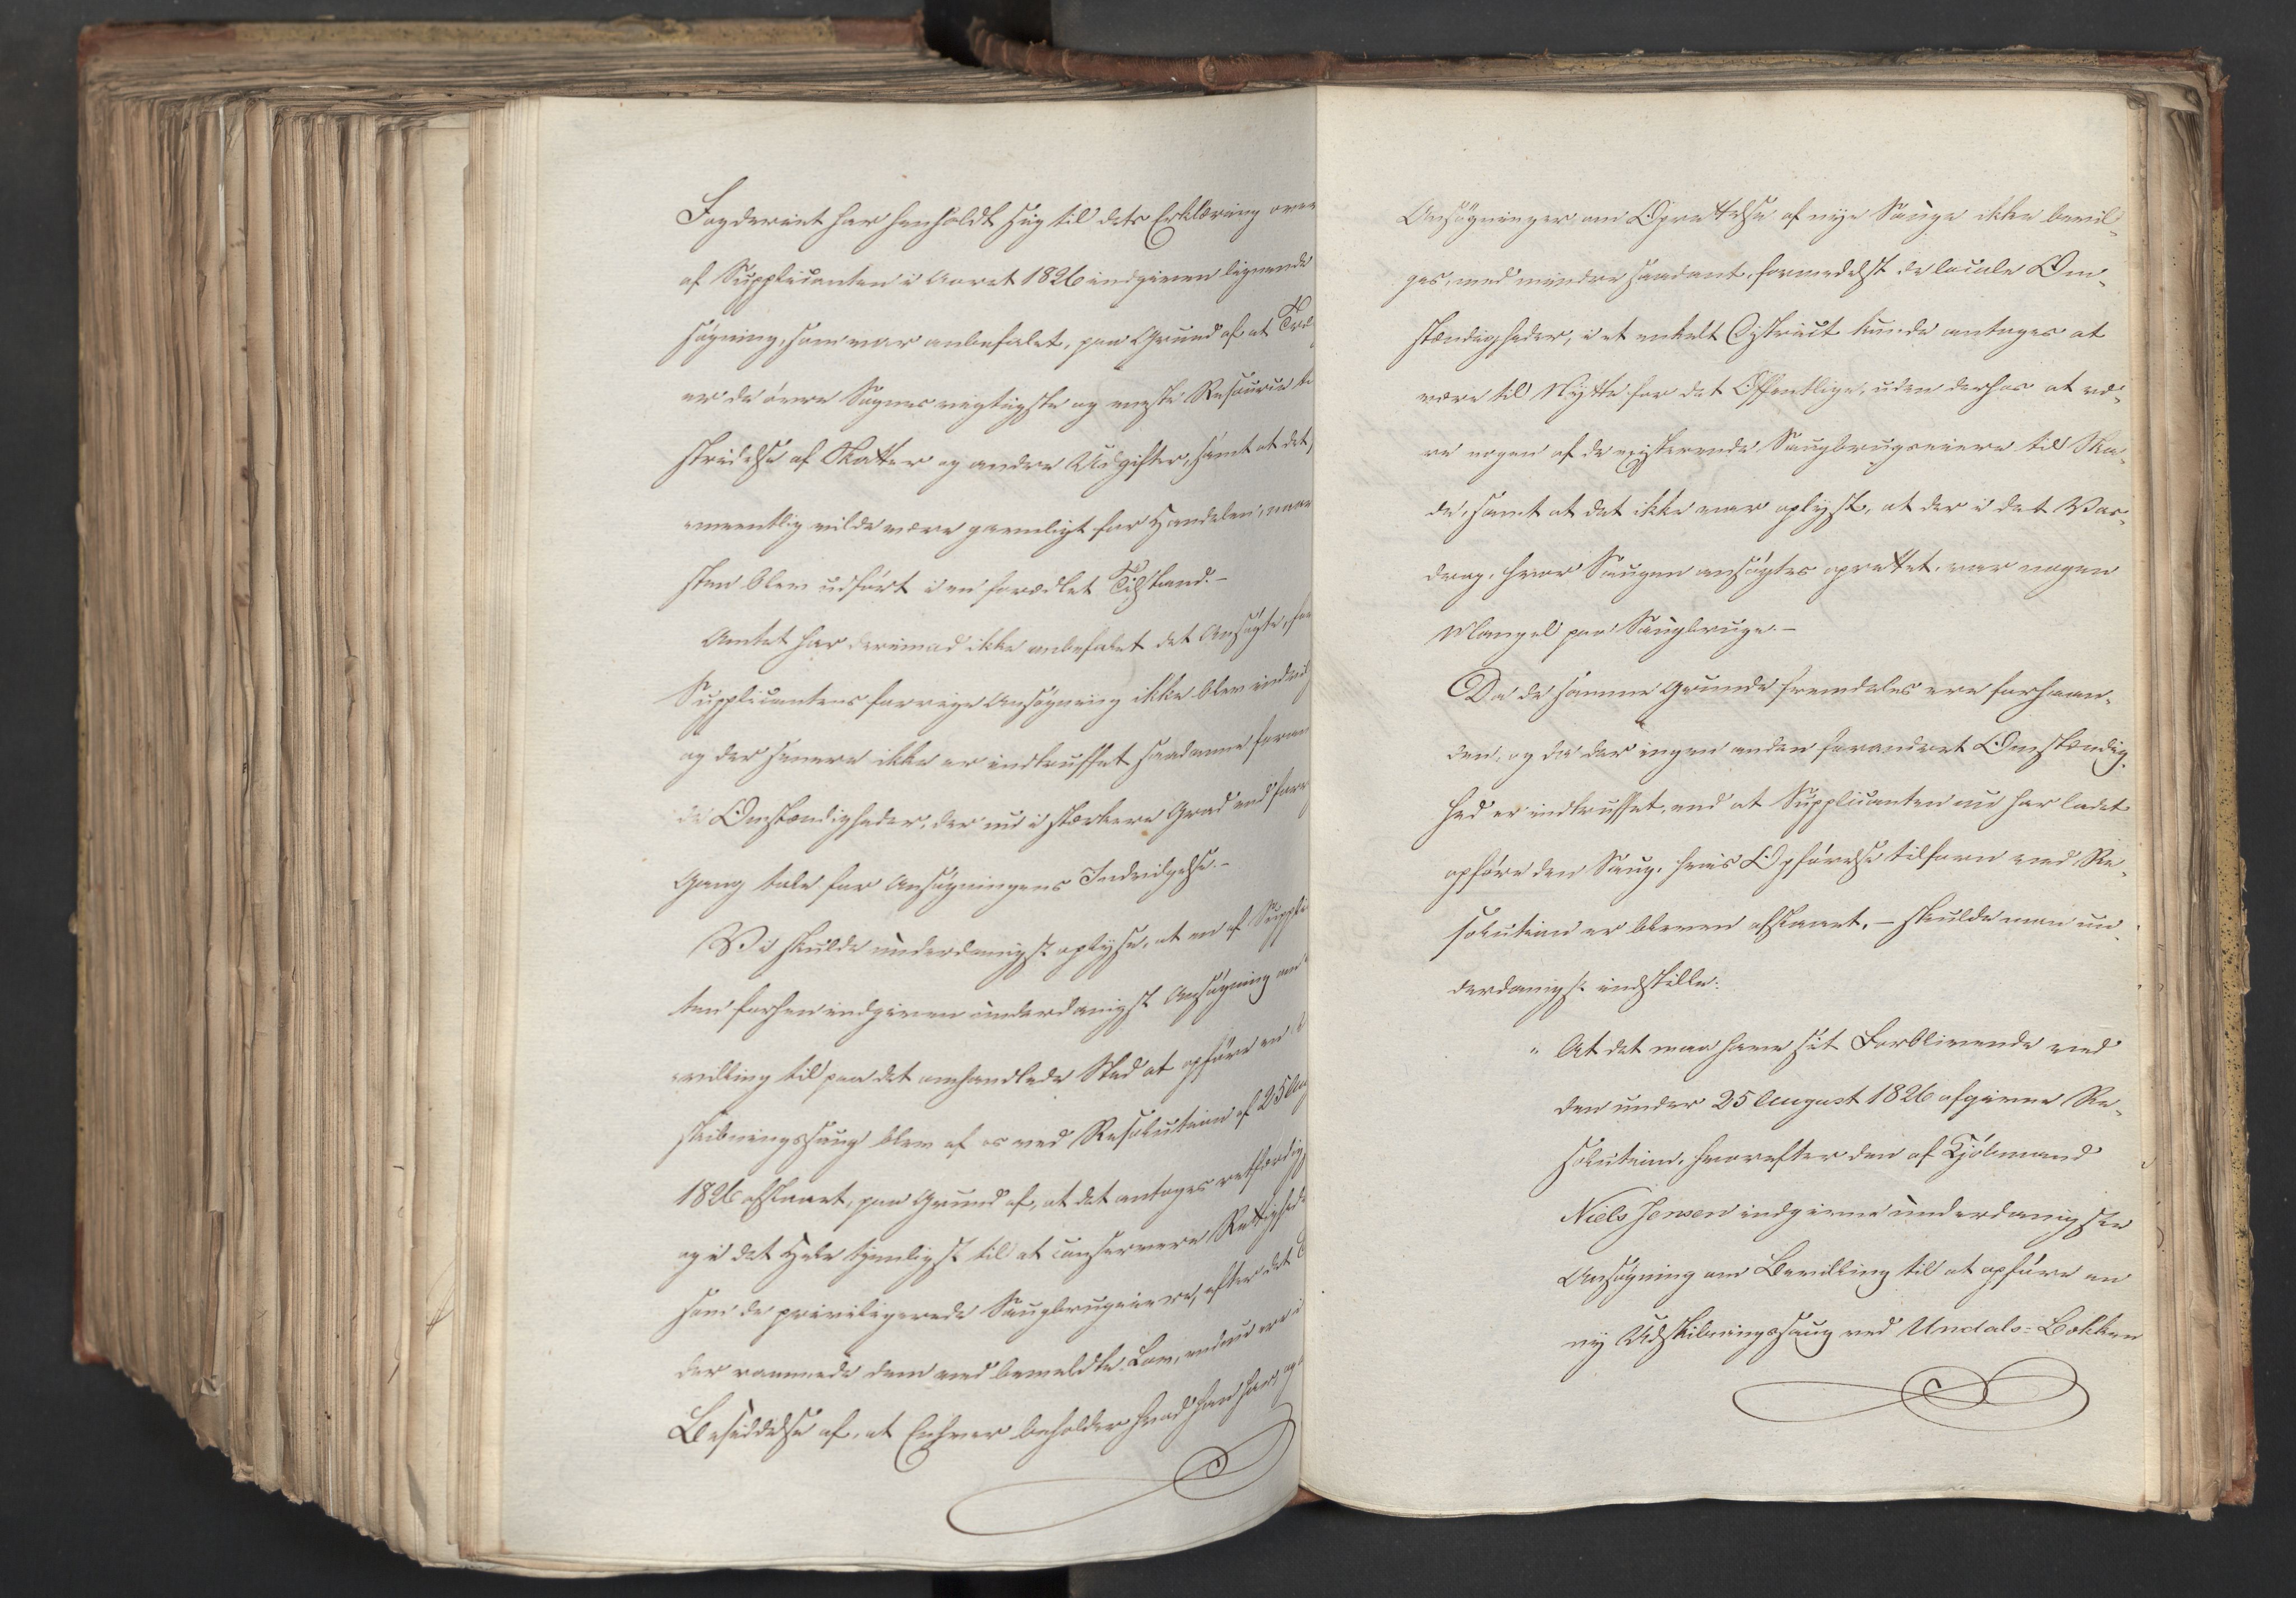 Fogderiet har henholdt sig til dets Erklæring over
af Supplicanten i Aaret 1826 indgiven lignende
søgning, som var anbefalet, paa Grund af at Træ
er de øvre Sognes vigtigste og eneste Resource
stridelse af Skatter og andre Udgifter, samt at det
meentlig vilde være gavnligt for Handelen, naar
sten blev udført i en forædlet Tilstand. –
Amtet har derimod ikke anbefalet det Ansøgte, for
Supplicantens forrige Ansøgning ikke blev indvil
og der senere ikke er indtruffet saadanne foran
de Omstændigheder, der nu i stærkere Grad end forr
Gang tale for Ansøgningens Indvilgelse. –
Vi skulde underdanigst oplyse, at en af Suppli
ten forhen indgiven underdanigst Ansøgning om
villing til paa det omhandlede Sted at opføre en
skibningssaug blev af os ved Resolution af 25 Aug
1826 afslaaet, paa Grund af, at det antages retfærdig
og i det Hele tjenligst til at conservere Rettighed
som de priviligerede Saugbrugseiere, efter det
der rammede dem ved bemeldte Lov, endnu ere i
Besiddelse af, at Enhver beholder hvad han har, og
Ansøgninger om Oprettelse af nye Sauge ikke bevil-
ges, med mindre saadant, formedelst de locale Om-
stændigheder, i et enkelt District kunde antages at
være til Nytte for det Offentlige, uden derhos at væ-
re nogen af de existerende Saugbrugseiere til Ska-
de, samt at det ikke var oplyst, at der i det Vas-
drag, hvor Saugen ansøgtes oprettet, var nogen
Mangel paa Saugbruge. –
Da de samme Grunde fremdeles ere forhaan-
den, og da der ingen anden forandret Omstændig-
hed er indtruffet, end at Supplicanten nu har ladet
opføre den Saug, hvis Opførelse tilforn ved Re-
solution er bleven afslaaet, – skulde man un-
derdanigst indstille:
" At det maa have sit Forblivende ved
den under 25 August 1826 afgivne Re-
solution, hvorefter den af Kjøbmand
Niels Jensen indgivne underdanigste
Ansøgning om Bevilling til at opføre en
ny Udskibningssaug ved Undals-Bækken